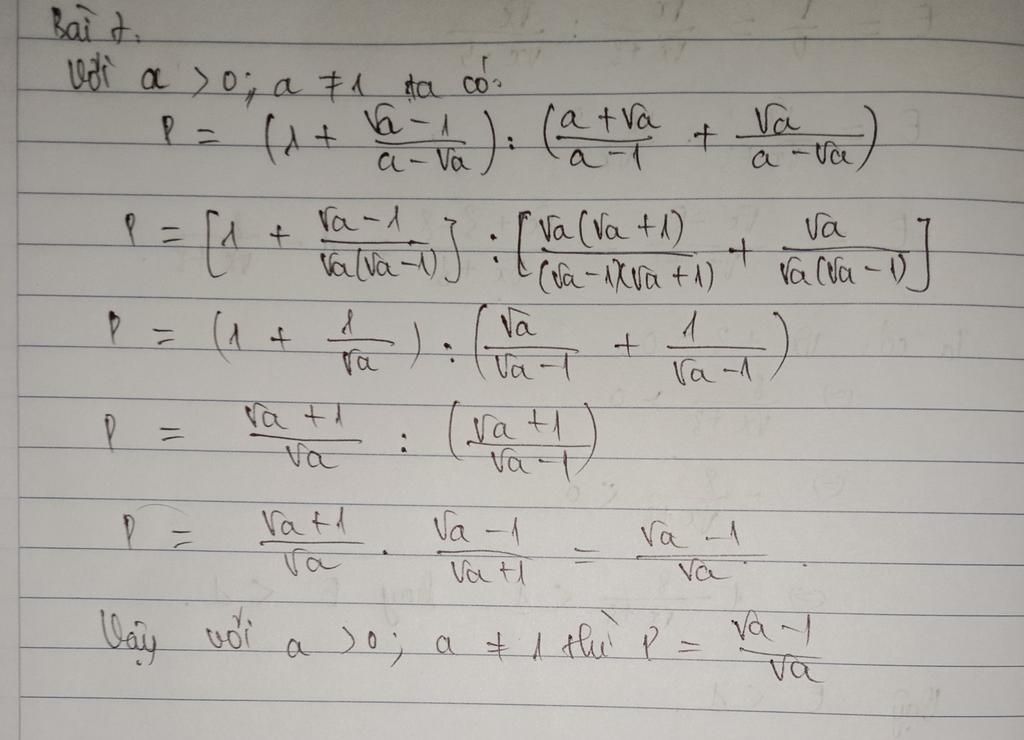 Bài 7.
Với a > 0; a ≠ 1 ta có:
P = (1 + (√a - 1)/(a - √a)) : ((a + √a)/(a - 1) + √a/(a - √a))
P = [1 + (√a - 1)/(√a(√a - 1))] : [√a(√a + 1)/((√a - 1)(√a + 1)) + √a/(√a(√a - 1))]
P = (1 + 1/√a) : (√a/(√a - 1) + 1/(√a - 1))
P = (√a + 1)/√a : ((√a + 1)/(√a - 1))
P = (√a + 1)/√a . (√a - 1)/(√a + 1) = (√a - 1)/√a .
Vậy với a > 0; a ≠ 1 thì P = (√a - 1)/√a